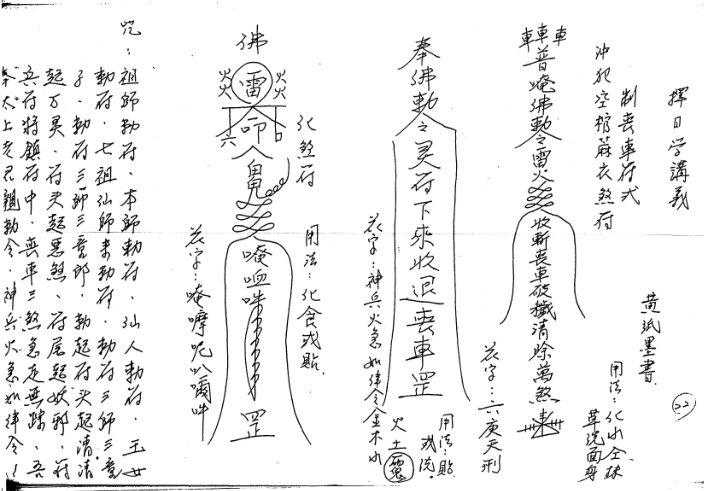 擇日学講義
黄紙墨書
22
制喪車符式
沖犯空棺蔴衣煞符
用法：化水全球
草洗面身
車車車
普唵佛勅令雷火
收斬喪車破穢清除萬煞
花字：六庚天刑
奉佛勅令灵符下來收退喪車罡
花字：神兵火急如律令金木水
火土
用法：貼
或洗
化煞符
用法：化食或貼
佛
火火雷火火
命
六
唵吽
罡
花字：唵摩呢叭囒吽
咒：祖師勅符、本師勅符、仙人勅符、玉女
勅符、七祖仙師來勅符、勅符三師三童
子、勅符三師三童郎、勅起符头起清清
起万灵、符头起惡煞、符尾起妖邪、符
兵符将鎮符中、喪車三煞急走無踪、吾
奉太上老君親勅令、神兵火急如律令